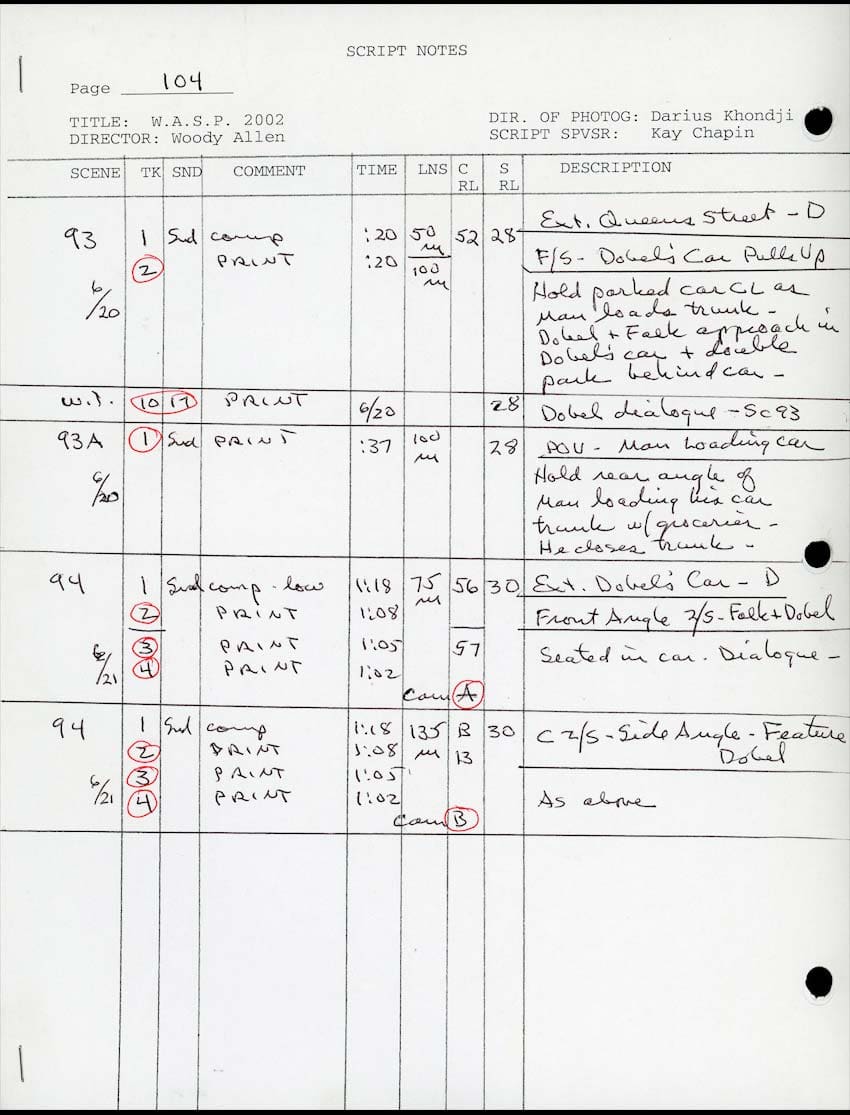 SCRIPT NOTES
Page 104
TITLE: W.A.S.P. 2002 DIR. OF PHOTOG: Darius Khondji
DIRECTOR: Woody Allen SCRIPT SPVSR: Kay Chapin
SCENE TK SND COMMENT TIME LNS C RL S RL DESCRIPTION
Ext. Queens Street - D
93 1 Snd comp :20 50 m 52 28
2 PRINT :20 100 m F/S - Dobel's Car Pulls Up
6/20 Hold parked car CL as
Man loads trunk -
Dobel + Falk approach in
Dobel's car + double
park behind car -
W.T. 10 17 PRINT 6/20 28 Dobel dialogue - Sc 93
93A 1 Snd PRINT :37 100 m 28 POV - Man Loading car
6/20 Hold rear angle of
Man loading his car
trunk w/ groceries -
He closes trunk -
94 1 Snd comp - low 1:18 75 m 56 30 Ext. Dobel's Car - D
2 PRINT 1:08 Front Angle 2/S - Falk + Dobel
3 PRINT 1:05 57 Seated in car. Dialogue -
6/21 4 PRINT 1:02
Cam A
94 1 Snd comp 1:18 135 m B 13 30 C 2/S - Side Angle - Feature
2 PRINT 1:08 Dobel
3 PRINT 1:05
6/21 4 PRINT 1:02 As above
Cam B